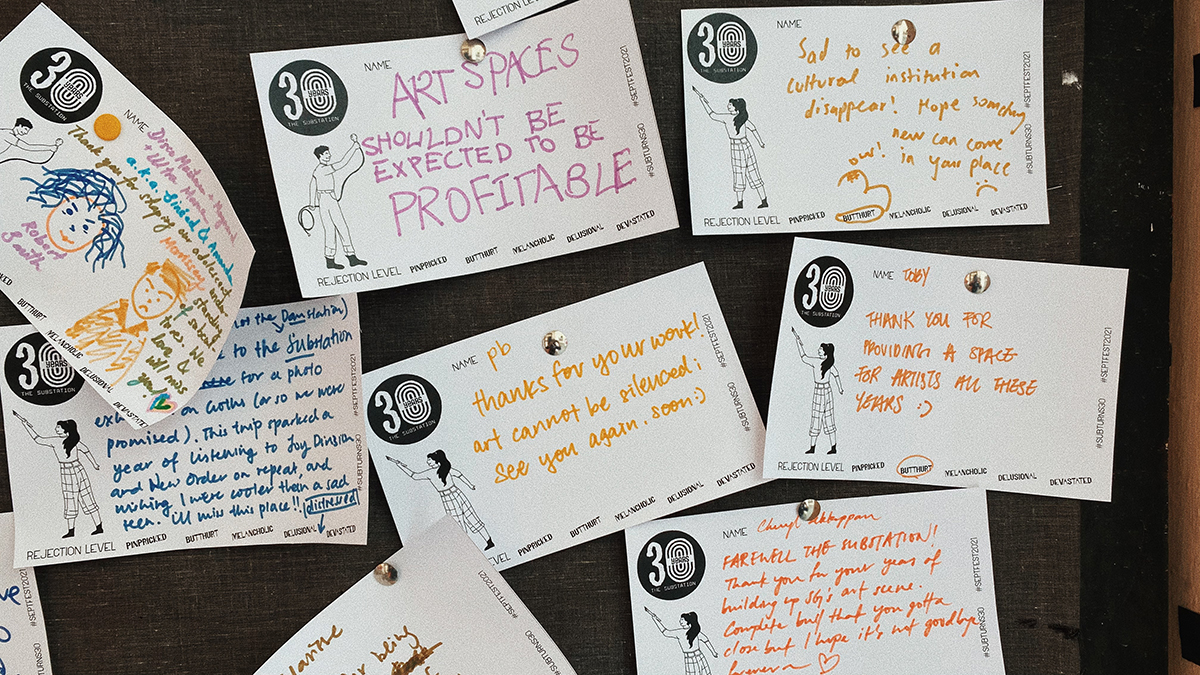 REJECTION LEVEL
30 YEARS
THE SUBSTATION
NAME
ART SPACES
SHOULDN'T BE
EXPECTED TO BE
PROFITABLE
REJECTION LEVEL PINPRICKED BUTTHURT MELANCHOLIC DELUSIONAL DEVASTATED
#SEPTFEST2021
#SUBTURNS30
30 YEARS
THE SUBSTATION
NAME
Sad to see a
cultural institution
disappear! Hope
new can come
in your place
our!
REJECTION LEVEL PINPRICKED BUTTHURT MELANCHOLIC DELUSIONAL DEVASTATED
#SEPTFEST2021
#SUBTURNS30
30 YEARS
THE SUBSTATION
NAME Disco
Thank you for our adolescent
a.k.a.
Robert
Smith
Morrissey
understanding
love. We
will miss
you!
BUTTHURT MELANCHOLIC DELUSIONAL DEVASTATED
30 YEARS
THE SUBSTATION
the Damstation)
to the Substation
for a photo
on Curtis (or so we were
promised). This trip sparked a
year of listening to Joy Division
and New Order on repeat, and
wishing I were cooler than a sad
teen. I'll miss this place!! distressed
REJECTION LEVEL PINPRICKED BUTTHURT MELANCHOLIC DELUSIONAL DEVASTATED
#SEPTFEST2021
#SUBTURNS30
30 YEARS
THE SUBSTATION
NAME pb
thanks for your work!
art cannot be silenced ¡
see you again. soon :)
LEVEL PINPRICKED BUTTHURT MELANCHOLIC DELUSIONAL DEVASTATED
#SEPTFEST2021
#SUBTURNS30
30 YEARS
THE SUBSTATION
NAME TOBY
THANK YOU FOR
PROVIDING A SPACE
FOR ARTISTS ALL THESE
YEARS :)
REJECTION LEVEL PINPRICKED BUTTHURT MELANCHOLIC DELUSIONAL DEVASTATED
#SEPTFEST2021
#SUBTURNS30
30 YEARS
THE SUBSTATION
NAME Cheryl
FAREWELL THE SUBSTATION!
Thank you for your years of
building up SG's art scene.
Complete bull that you gotta
close but I hope it's not goodbye
forever
#SEPTFEST2021
#SUBTURNS30
being
#SEPTFEST2021
#SUBTURNS30